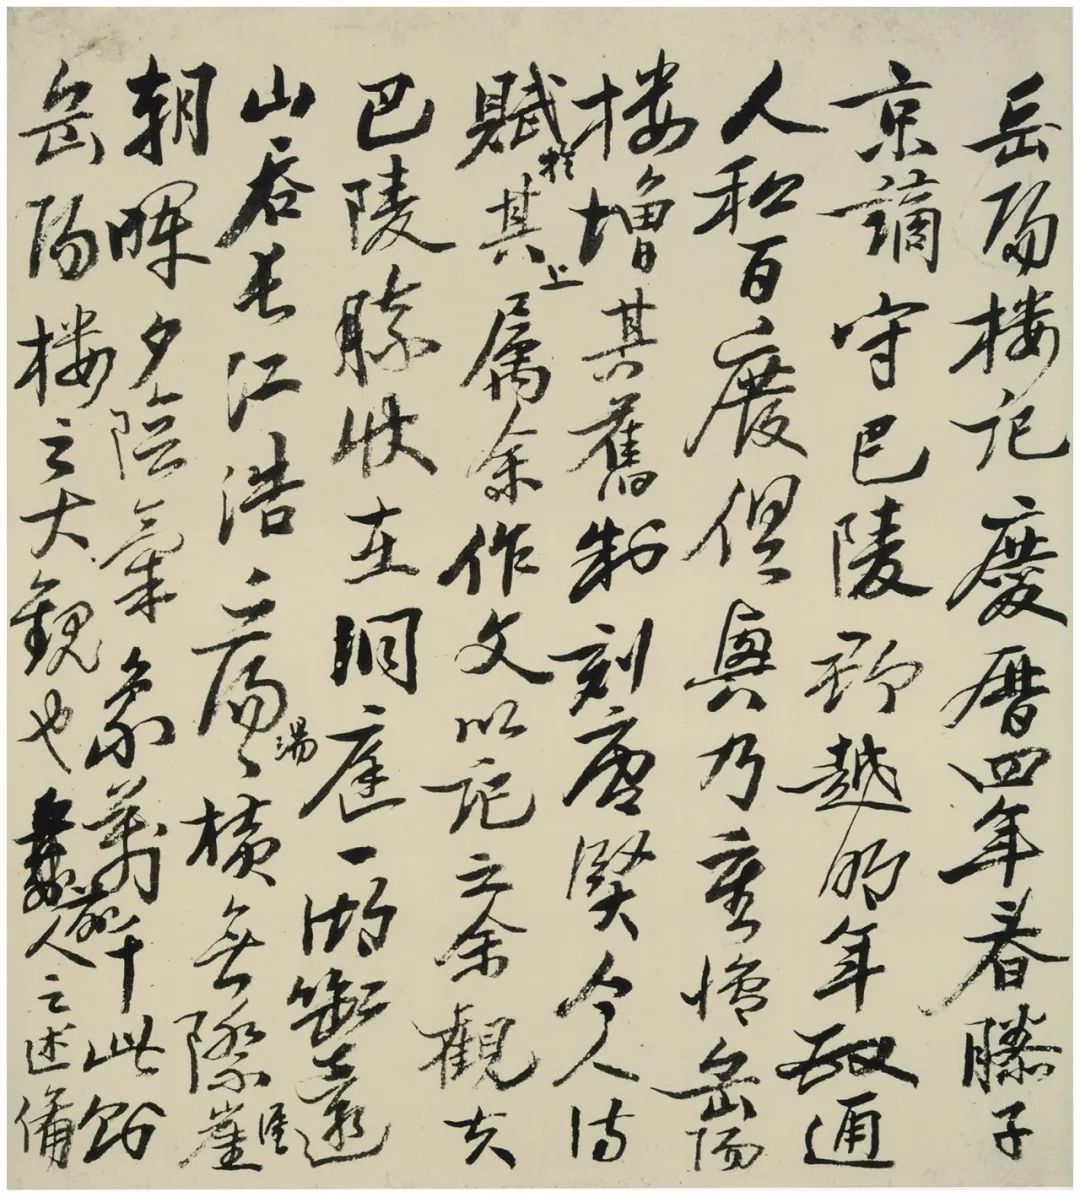 岳陽樓記慶曆四年春滕子
京謫守巴陵郡越明年政通
人和百廢俱興乃重岳陽
樓增其舊制刻唐賢今人詩
賦於其上屬余作文以記之余觀夫
巴陵勝狀在洞庭一湖銜遠
山吞長江浩〻蕩〻湯橫無際崖涯
朝暉夕陰氣象萬千此則
岳陽樓之大觀也前人之述備